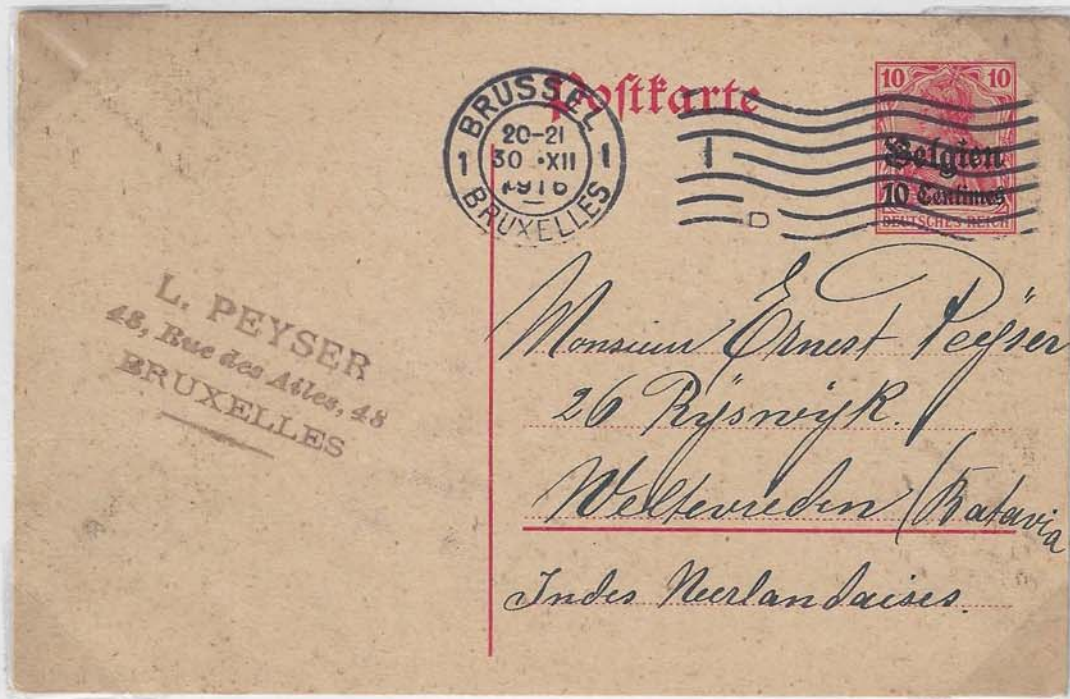 Postkarte
BRUSSEL
20-21
1 30 XII 1
1916
BRUXELLES
D
10 10
Belgien
10 Centimes
DEUTSCHES REICH
L. PEYSER
48, Rue des Ailes, 48
BRUXELLES
Monsieur Ernest Peÿser
26 Rÿswÿk.
Weltevreden (Batavia
Indes Neerlandaises.